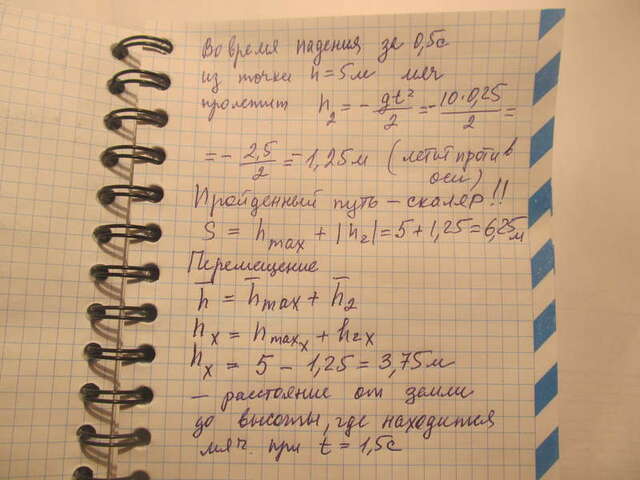 Во время падения за 0,5с
из точки h = 5м мяч
пролетит h₂ = - gt²/2 = - 10·0,25/2 =
= - 2,5/2 = - 1,25м (летит против оси)
Пройденный путь – скаляр!!
S = hmax + |h₂| = 5 + 1,25 = 6,25м
Перемещение
h̅ = h̅max + h̅₂
hx = hmaxx + h₂x
hx = 5 - 1,25 = 3,75м
– расстояние от земли
до высоты, где находится
мяч при t = 1,5с